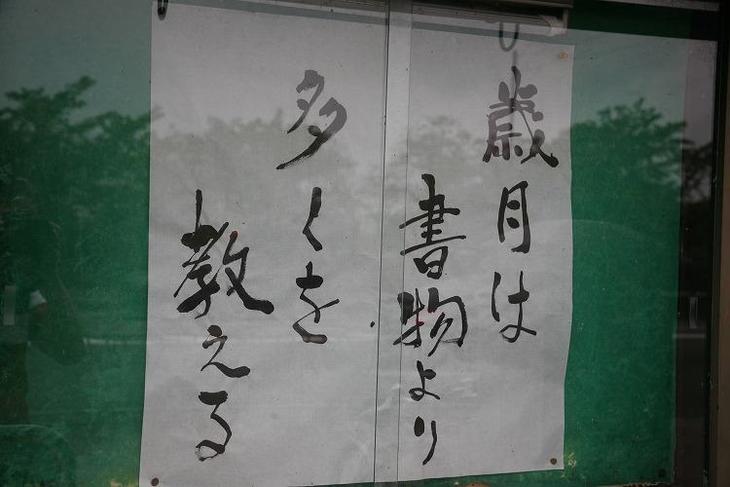 歳月は
書物より
多くを
教える